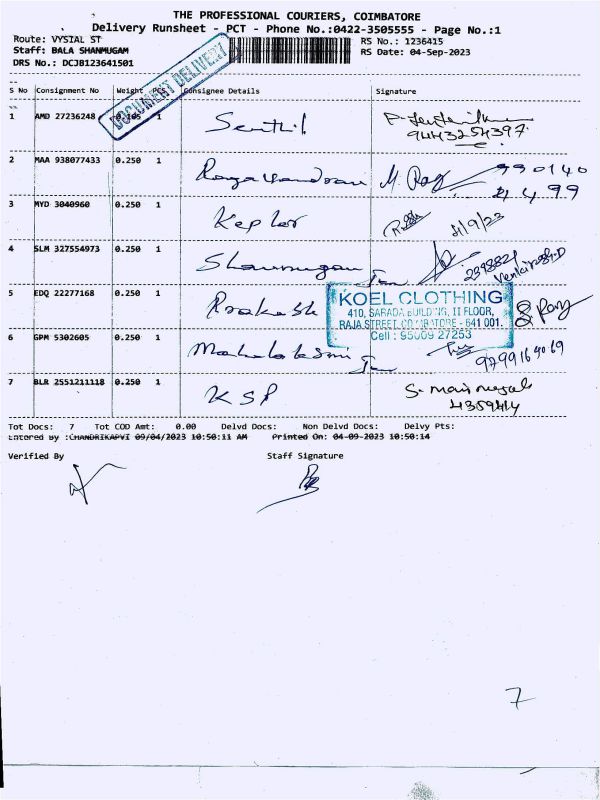 THE PROFESSIONAL COURIERS, COIMBATORE
Delivery Runsheet - PCT - Phone No.:0422-3505555 - Page No.:1
Route: VYSIAL ST
RS No.: 1236415
Staff: BALA SHANMUGAM
RS Date: 04-Sep-2023
DRS No.: DCJB123641501
DOCUMENT DELIVERY
S No Consignment No Weight PCS Consignee Details Signature
1 AMD 27236248 1 Senthil
9443254397
2 MAA 938077433 0.250 1 Ragavendran M. Raj 990140
3 MYD 3040960 0.250 1 Kepler 4/9/23
4 SLM 327554973 0.250 1 Shanmugam
5 EDQ 22277168 0.250 1 Prakash
KOEL CLOTHING
410, SARADA BUILDING, II FLOOR,
RAJA STREET, COIMBATORE - 641 001.
Cell : 95009 27253
6 GPM 5302605 0.250 1 Mahalakshmi
7 BLR 2551211118 0.250 1 KSP
Tot Docs: 7 Tot COD Amt: 0.00 Delvd Docs: Non Delvd Docs: Delvy Pts:
Entered By :CHANDRIKAPVI 09/04/2023 10:50:11 AM Printed On: 04-09-2023 10:50:14
Verified By Staff Signature
7